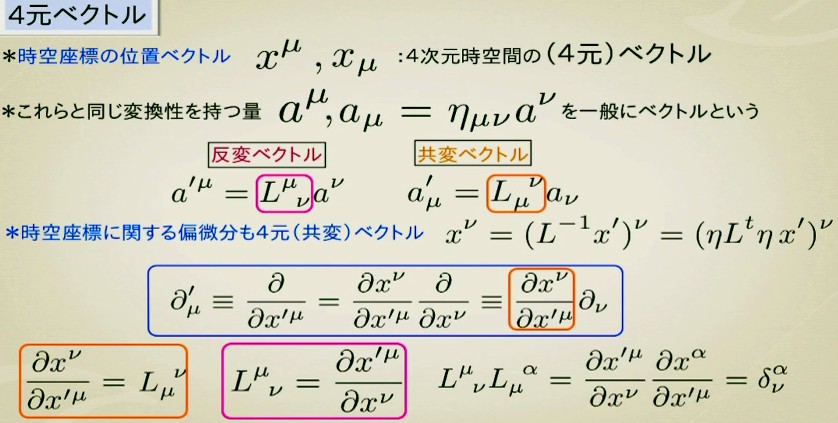 4元ベクトル
*時空座標の位置ベクトル x^μ , x_μ :4次元時空間の(4元)ベクトル
*これらと同じ変換性を持つ量 a^μ, a_μ = η_{μν} a^ν を一般にベクトルという
反変ベクトル 共変ベクトル
a'^μ = L^μ_ν a^ν a'_μ = L_μ^ν a_ν
*時空座標に関する偏微分も4元(共変)ベクトル x^ν = (L^{-1} x')^ν = (η L^t η x')^ν
∂'_μ ≡ ∂/∂x'^μ = ∂x^ν/∂x'^μ ∂/∂x^ν ≡ ∂x^ν/∂x'^μ ∂_ν
∂x^ν/∂x'^μ = L_μ^ν L^μ_ν = ∂x'^μ/∂x^ν L^μ_ν L_μ^α = ∂x'^μ/∂x^ν ∂x^α/∂x'^μ = δ^α_ν